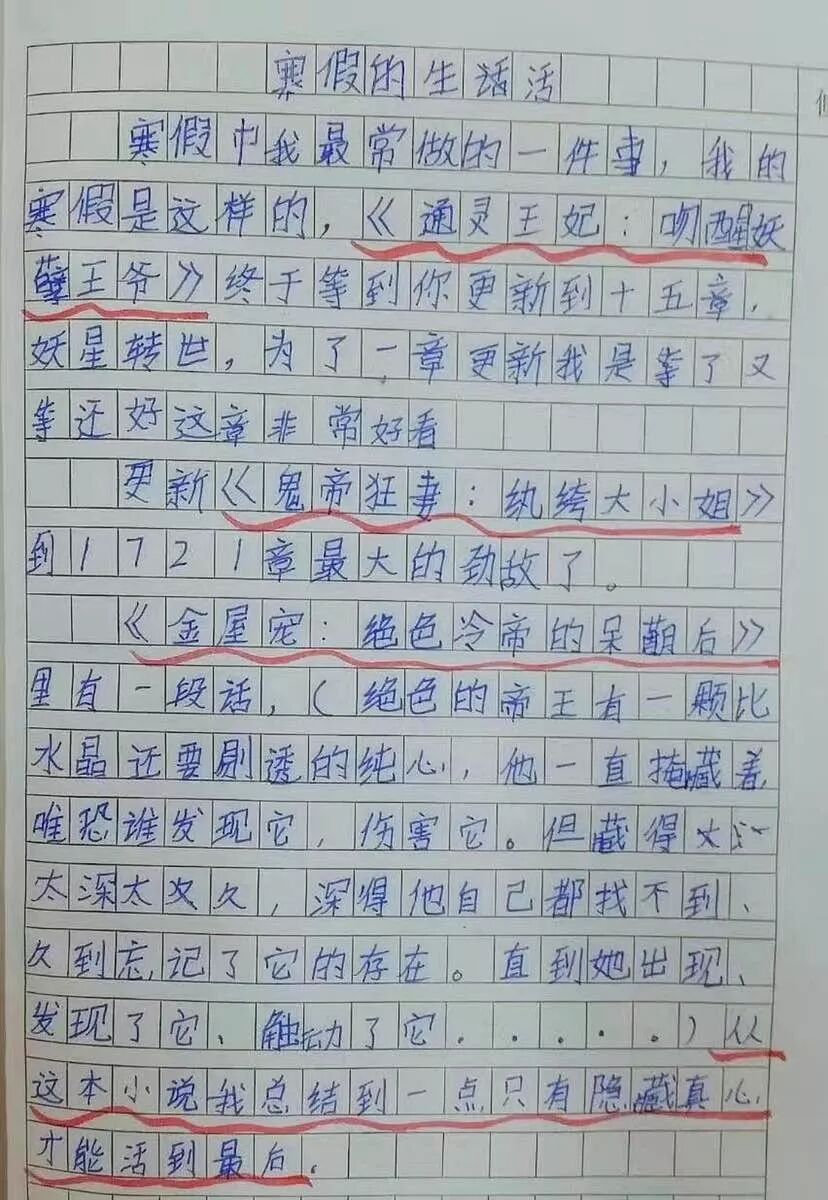 寒假的生活活
寒假中我最常做的一件事，我的
寒假是这样的，《通灵王妃：吻醒妖
孽王爷》终于等到你更新到十五章．
妖星转世，为了一章更新我是等了又
等还好这章非常好看
更新《鬼帝狂妻：纨绔大小姐》
到1721章最大的劲敌了。
《金屋宠：绝色冷帝的呆萌后》
里有一段话，（绝色的帝王有一颗比
水晶还要剔透的纯心，他一直掩藏着
唯恐谁发现它，伤害它。但藏得
太深太久，深得他自己都找不到、
久到忘记了它的存在。直到她出现、
发现了它、触动了它．．．．．）从
这本小说我总结到一点只有隐藏真心
才能活到最后．